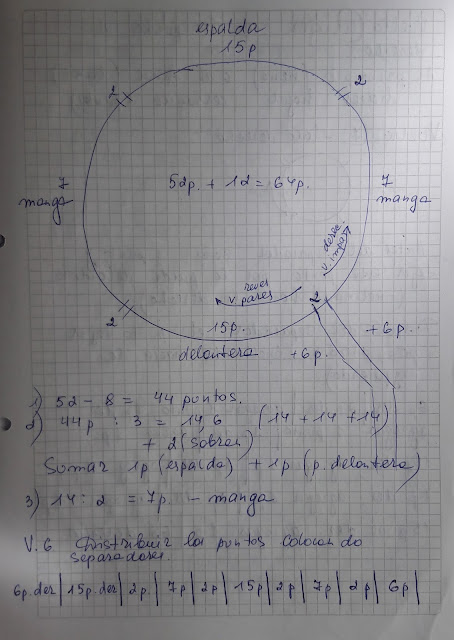 espalda
15p
2
2
7
manga
52p. + 12 = 64p.
7
manga
derec.
v. impar
reves
v pares
2
2
15p.
delantera
+6p.
+6p.
1) 52 - 8 = 44 puntos.
2) 44p : 3 = 14,6 (14 + 14 + 14)
+ 2 (sobran)
Sumar 1p (espalda) + 1p (p. delantera)
3) 14 : 2 = 7p. - manga
V. 6. Distribuir los puntos colocando
separadores.
6p. der | 15p. der | 2p. | 7p | 2p | 15p | 2p | 7p | 2p | 6p |